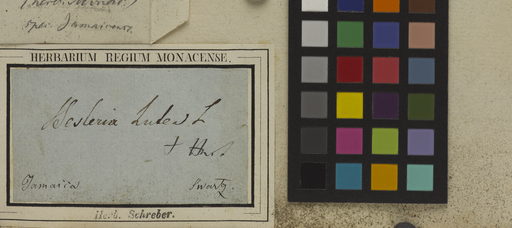 spec. Jamaicense.
HERBARIUM REGIUM MONACENSE.
Sesleria lutea L
+ Hb.
Jamaica
Swartz.
Herb. Schreber.